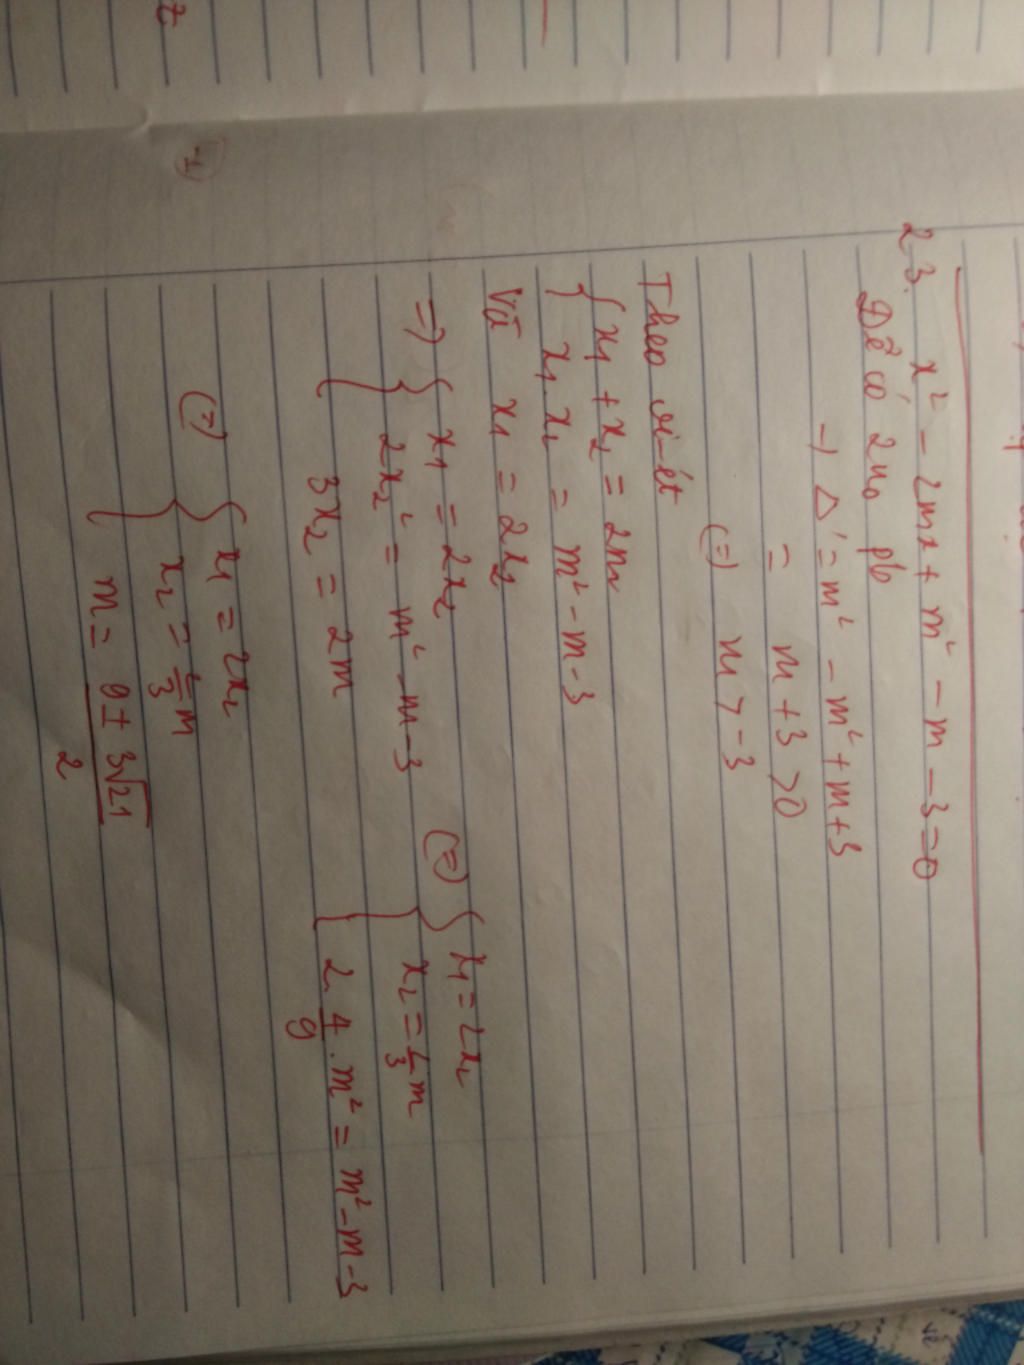 23. x² - 2mx + m² - m - 3 = 0
Để có 2n₀ pb
→ Δ' = m² - m² + m + 3
= m + 3 > 0
(=) m > -3
Theo vi-ét
{ x₁ + x₂ = 2m
x₁.x₂ = m² - m - 3
Và x₁ = 2x₂
=) { x₁ = 2x₂
2x₂² = m² - m - 3
3x₂ = 2m
(=) { x₁ = 2x₂
x₂ = 2/3 m
2 4/9 . m² = m² - m - 3
(=) { x₁ = 2x₂
x₂ = 2/3 m
m = (9 ± 3√21)/2